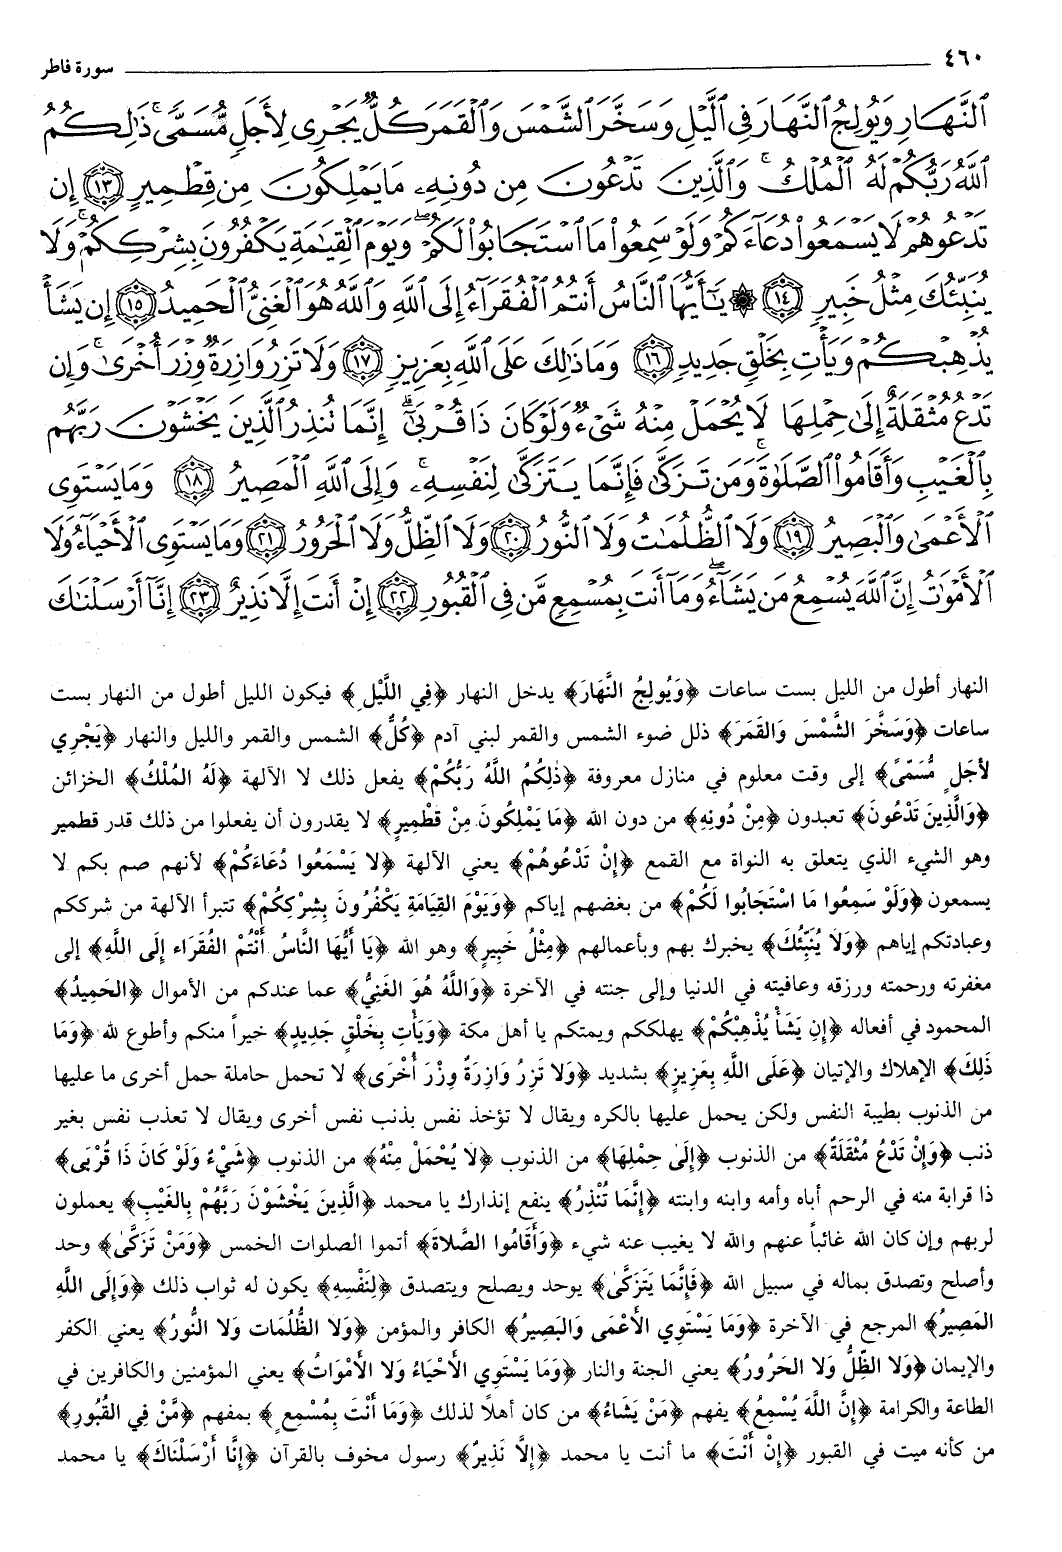 ٤٦٠
سورة فاطر
ٱلنَّهَارِ وَيُولِجُ ٱلنَّهَارَ فِى ٱلَّيْلِ وَسَخَّرَ ٱلشَّمْسَ وَٱلْقَمَرَ كُلٌّ يَجْرِى لِأَجَلٍ مُّسَمًّى ۚ ذَٰلِكُمُ
ٱللَّهُ رَبُّكُمْ لَهُ ٱلْمُلْكُ ۚ وَٱلَّذِينَ تَدْعُونَ مِن دُونِهِۦ مَا يَمْلِكُونَ مِن قِطْمِيرٍ ﴿١٣﴾ إِن
تَدْعُوهُمْ لَا يَسْمَعُوا۟ دُعَآءَكُمْ وَلَوْ سَمِعُوا۟ مَا ٱسْتَجَابُوا۟ لَكُمْ ۖ وَيَوْمَ ٱلْقِيَٰمَةِ يَكْفُرُونَ بِشِرْكِكُمْ ۚ وَلَا
يُنَبِّئُكَ مِثْلُ خَبِيرٍ ﴿١٤﴾ ۞ يَٰٓأَيُّهَا ٱلنَّاسُ أَنتُمُ ٱلْفُقَرَآءُ إِلَى ٱللَّهِ وَٱللَّهُ هُوَ ٱلْغَنِىُّ ٱلْحَمِيدُ ﴿١٥﴾ إِن يَشَأْ
يُذْهِبْكُمْ وَيَأْتِ بِخَلْقٍ جَدِيدٍ ﴿١٦﴾ وَمَا ذَٰلِكَ عَلَى ٱللَّهِ بِعَزِيزٍ ﴿١٧﴾ وَلَا تَزِرُ وَازِرَةٌ وِزْرَ أُخْرَىٰ ۚ وَإِن
تَدْعُ مُثْقَلَةٌ إِلَىٰ حِمْلِهَا لَا يُحْمَلْ مِنْهُ شَىْءٌ وَلَوْ كَانَ ذَا قُرْبَىٰٓ ۗ إِنَّمَا تُنذِرُ ٱلَّذِينَ يَخْشَوْنَ رَبَّهُم
بِٱلْغَيْبِ وَأَقَامُوا۟ ٱلصَّلَوٰةَ ۚ وَمَن تَزَكَّىٰ فَإِنَّمَا يَتَزَكَّىٰ لِنَفْسِهِۦ ۚ وَإِلَى ٱللَّهِ ٱلْمَصِيرُ ﴿١٨﴾ وَمَا يَسْتَوِى
ٱلْأَعْمَىٰ وَٱلْبَصِيرُ ﴿١٩﴾ وَلَا ٱلظُّلُمَٰتُ وَلَا ٱلنُّورُ ﴿٢٠﴾ وَلَا ٱلظِّلُّ وَلَا ٱلْحَرُورُ ﴿٢١﴾ وَمَا يَسْتَوِى ٱلْأَحْيَآءُ وَلَا
ٱلْأَمْوَٰتُ ۚ إِنَّ ٱللَّهَ يُسْمِعُ مَن يَشَآءُ ۖ وَمَآ أَنتَ بِمُسْمِعٍ مَّن فِى ٱلْقُبُورِ ﴿٢٢﴾ إِنْ أَنتَ إِلَّا نَذِيرٌ ﴿٢٣﴾ إِنَّآ أَرْسَلْنَٰكَ
النهار أطول من الليل بست ساعات ﴿وَيُولِجُ النَّهَارَ﴾ يدخل النهار ﴿فِي اللَّيْلِ﴾ فيكون الليل أطول من النهار بست
ساعات ﴿وَسَخَّرَ الشَّمْسَ وَالقَمَرَ﴾ ذلل ضوء الشمس والقمر لبني آدم ﴿كُلٌّ﴾ الشمس والقمر والليل والنهار ﴿يَجْرِي
لأجَلٍ مُّسَمّىً﴾ إلى وقت معلوم في منازل معروفة ﴿ذٰلِكُمُ اللَّهُ رَبُّكُمْ﴾ يفعل ذلك لا الآلهة ﴿لَهُ المُلْكُ﴾ الخزائن
﴿وَالَّذِينَ تَدْعُونَ﴾ تعبدون ﴿مِنْ دُونِهِ﴾ من دون الله ﴿مَا يَمْلِكُونَ مِنْ قطْمِيرٍ﴾ لا يقدرون أن يفعلوا من ذلك قدر قطمير
وهو الشيء الذي يتعلق به النواة مع القمع ﴿إنْ تَدْعُوهُمْ﴾ يعني الآلهة ﴿لا يَسْمَعُوا دُعَاءَكُمْ﴾ لأنهم صم بكم لا
يسمعون ﴿وَلَوْ سَمِعُوا مَا اسْتَجَابُوا لَكُمْ﴾ من بغضهم إياكم ﴿وَيَوْمَ القِيَامَةِ يَكْفُرُونَ بِشِرْكِكُمْ﴾ تتبرأ الآلهة من شرككم
وعبادتكم إياهم ﴿وَلاَ يُنَبِّئُكَ﴾ يخبرك بهم وبأعمالهم ﴿مِثْلُ خَبِيرٍ﴾ وهو الله ﴿يَا أَيُّهَا النَّاسُ أَنْتُمْ الفُقَرَاء إِلَى اللَّهِ﴾ إلى
مغفرته ورحمته ورزقه وعافيته في الدنيا وإلى جنته في الآخرة ﴿وَاللَّهُ هُوَ الغَنِيُّ﴾ عما عندكم من الأموال ﴿الحَمِيدُ﴾
المحمود في أفعاله ﴿إن يَشَأْ يُذْهِبْكُمْ﴾ يهلككم ويمتكم يا أهل مكة ﴿وَيَأْتِ بِخَلْقٍ جَدِيدٍ﴾ خيراً منكم وأطوع لله ﴿وَمَا
ذَلِكَ﴾ الإهلاك والإتيان ﴿عَلَى اللَّهِ بِعَزِيزٍ﴾ بشديد ﴿وَلاَ تَزِرُ وَازِرَةٌ وِزْرَ أُخْرَى﴾ لا تحمل حاملة حمل أخرى ما عليها
من الذنوب بطيبة النفس ولكن يحمل عليها بالكره ويقال لا تؤخذ نفس بذنب نفس أخرى ويقال لا تعذب نفس بغير
ذنب ﴿وَإنْ تَدْعُ مُثْقَلَةٌ﴾ من الذنوب ﴿إلَىٰ حِمْلِهَا﴾ من الذنوب ﴿لا يُحْمَلْ مِنْهُ﴾ من الذنوب ﴿شَيْءٌ وَلَوْ كَانَ ذَا قُرْبَى﴾
ذا قرابة منه في الرحم أباه وأمه وابنه وابنته ﴿إنَّمَا تُنْذِرُ﴾ ينفع إنذارك يا محمد ﴿الَّذِينَ يَخْشَوْنَ رَبَّهُمْ بِالغَيْبِ﴾ يعملون
لربهم وإن كان الله غائباً عنهم والله لا يغيب عنه شيء ﴿وَأَقَامُوا الصَّلاةَ﴾ أتموا الصلوات الخمس ﴿وَمَنْ تَزَكَّىٰ﴾ وحد
وأصلح وتصدق بماله في سبيل الله ﴿فَإِنَّمَا يَتَزَكَّىٰ﴾ يوحد ويصلح ويتصدق ﴿لِنَفْسِهِ﴾ يكون له ثواب ذلك ﴿وَإلَى اللَّهِ
المَصِيرُ﴾ المرجع في الآخرة ﴿وَمَا يَسْتَوِي الأَعْمَى وَالبَصِيرُ﴾ الكافر والمؤمن ﴿وَلا الظُّلُمَات وَلا النُّورُ﴾ يعني الكفر
والإيمان ﴿وَلا الظِّلُّ وَلا الحَرُورُ﴾ يعني الجنة والنار ﴿وَمَا يَسْتَوِي الأحْيَاءُ وَلا الأمْوَاتُ﴾ يعني المؤمنين والكافرين في
الطاعة والكرامة ﴿إنَّ اللَّهَ يُسْمِعُ﴾ يفهم ﴿مَنْ يَشَاءُ﴾ من كان أهلاً لذلك ﴿وَمَا أَنْتَ بِمُسْمِعٍ﴾ بمفهم ﴿مَّنْ فِي القُبُورِ﴾
من كأنه ميت في القبور ﴿إِنْ أَنْتَ﴾ ما أنت يا محمد ﴿إلاَّ نَذِيرٌ﴾ رسول مخوف بالقرآن ﴿إنَّا أَرْسَلْنَاكَ﴾ يا محمد